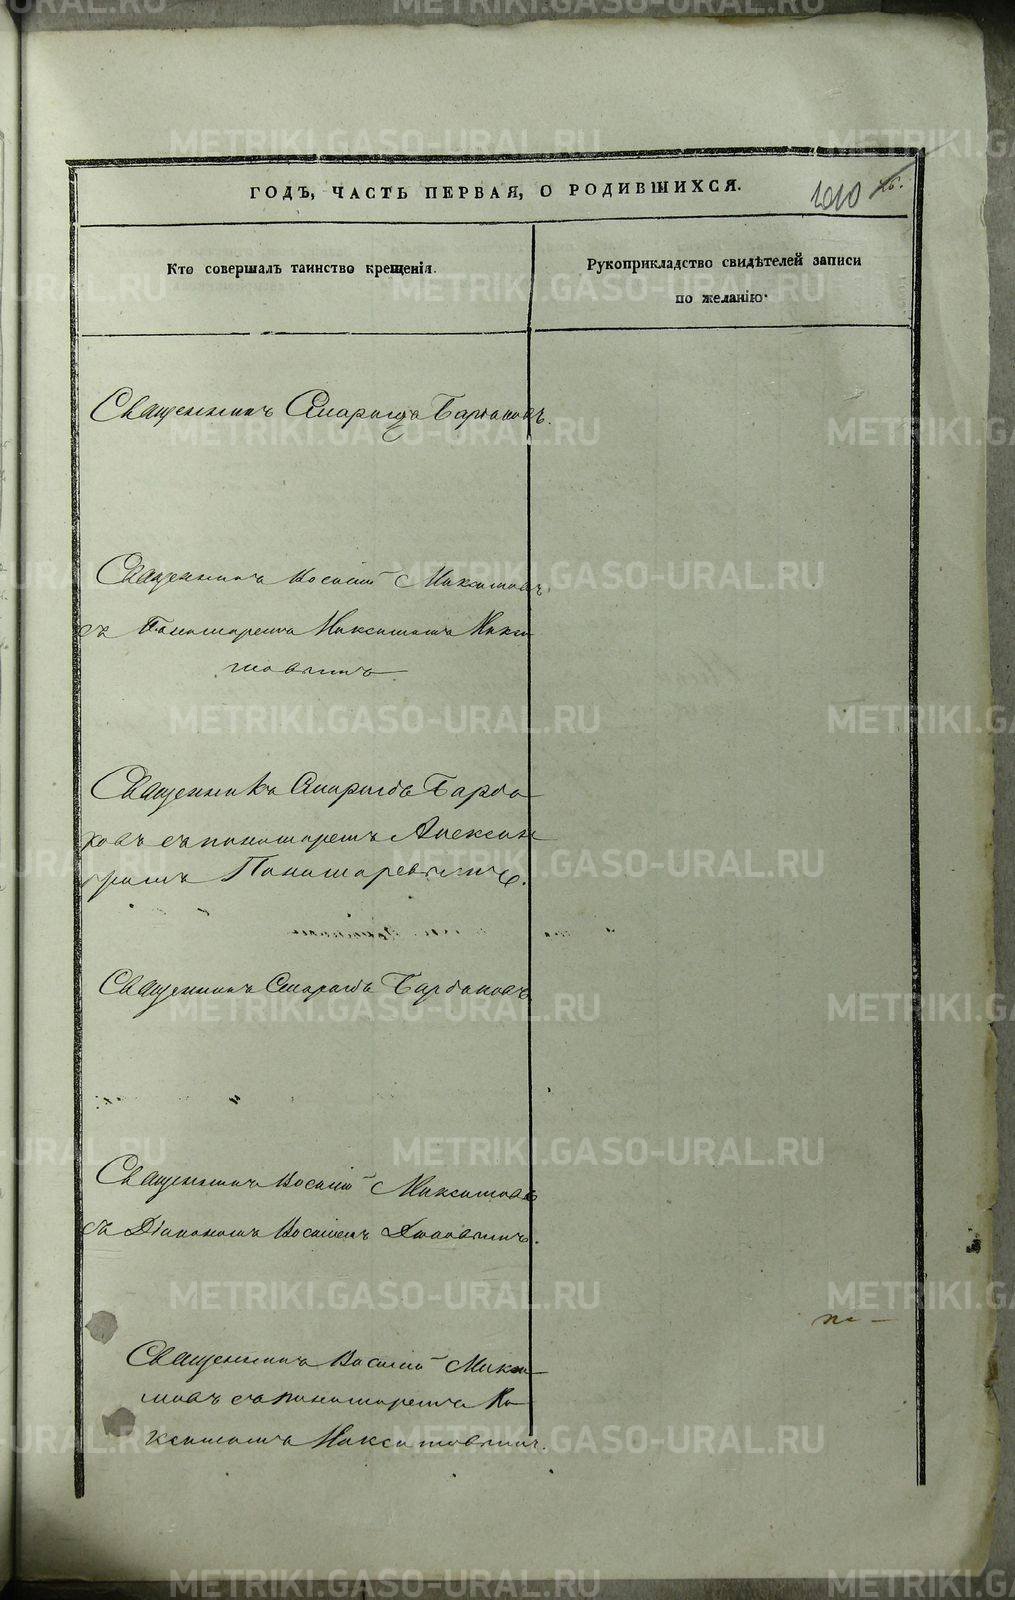 ГОДЪ, ЧАСТЬ ПЕРВАЯ, О РОДИВШИХСЯ.
1010
Кто совершалъ таинство крещенія.
Рукоприкладство свидѣтелей записи
по желанію.
Священникъ Смарагдъ Барбаковъ.
Священникъ Василій Максимовъ
съ Пономаремъ Максимомъ Макси
мовымъ
Священникъ Смарагдъ Барба
ковъ съ пономаремъ Алексан
дромъ Пономаревымъ.
Священникъ Смарагдъ Барбаковъ
Священникъ Василій Максимовъ
съ Діакономъ Василіемъ
Священникъ Василій Макси
мовъ съ пономаремъ Ма
ксимомъ Максимовымъ.
METRIKI.GASO-URAL.RU